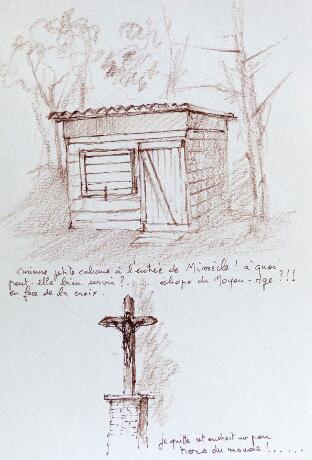 Curieuse petite cabane à l'entrée de Mimsèle ! à quoi
peut-elle bien servir ? ..... échope du Moyen-Age ?!!
en face de la croix.
Je quitte cet endroit un peu
hors du monde ! ......